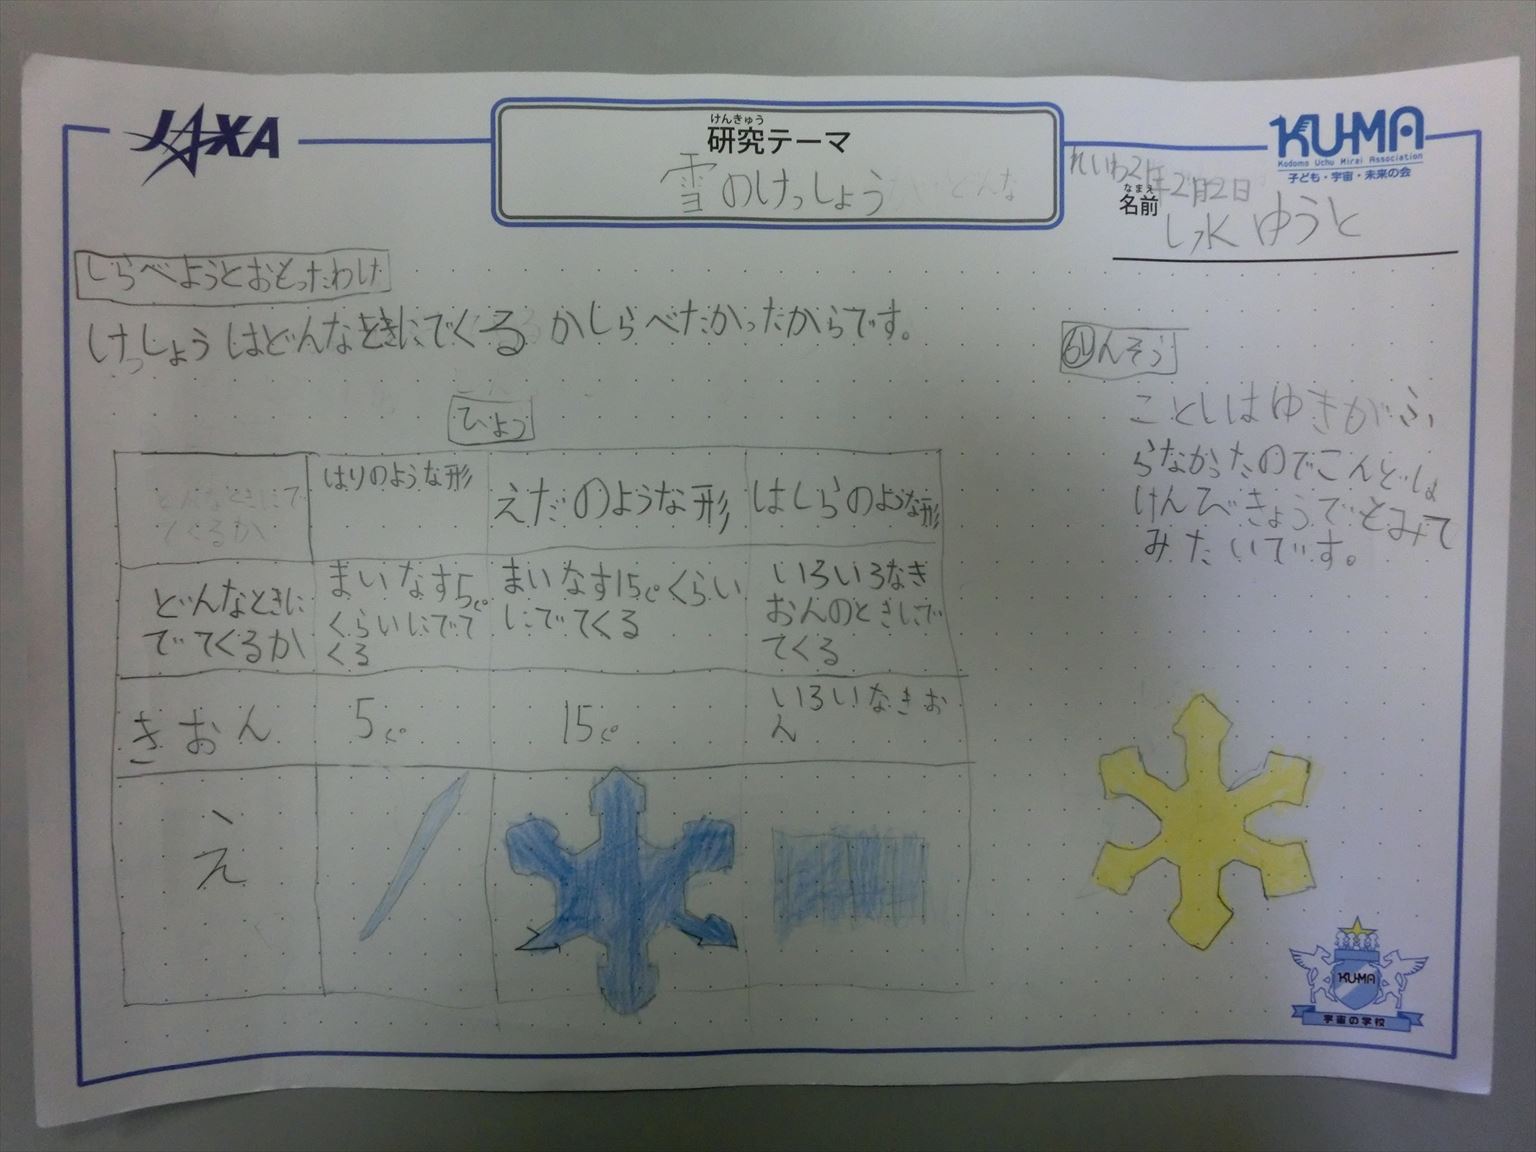 JAXA
けんきゅう
研究テーマ
雪のけっしょう
KU-MA
Kodomo Uchu Mirai Association
子ども・宇宙・未来の会
れいわ2年2月2日
なまえ
名前
水 ゆうと
しらべようとおもったわけ
けっしょうはどんなときにでてくるかしらべたかったからです。
ひょう
はりのような形
えだのような形
はしらのような形
どんなときに
でてくるか
まいなす5℃
くらいにでて
くる
まいなす15℃くらい
にでてくる
いろいろなき
おんのときにで
てくる
きおん
5℃
15℃
いろいなきお
ん
え
かんそう
ことしはゆきがふ
らなかったのでこんどは
けんびきょうでとみて
みたいです。
KU-MA
宇宙の学校